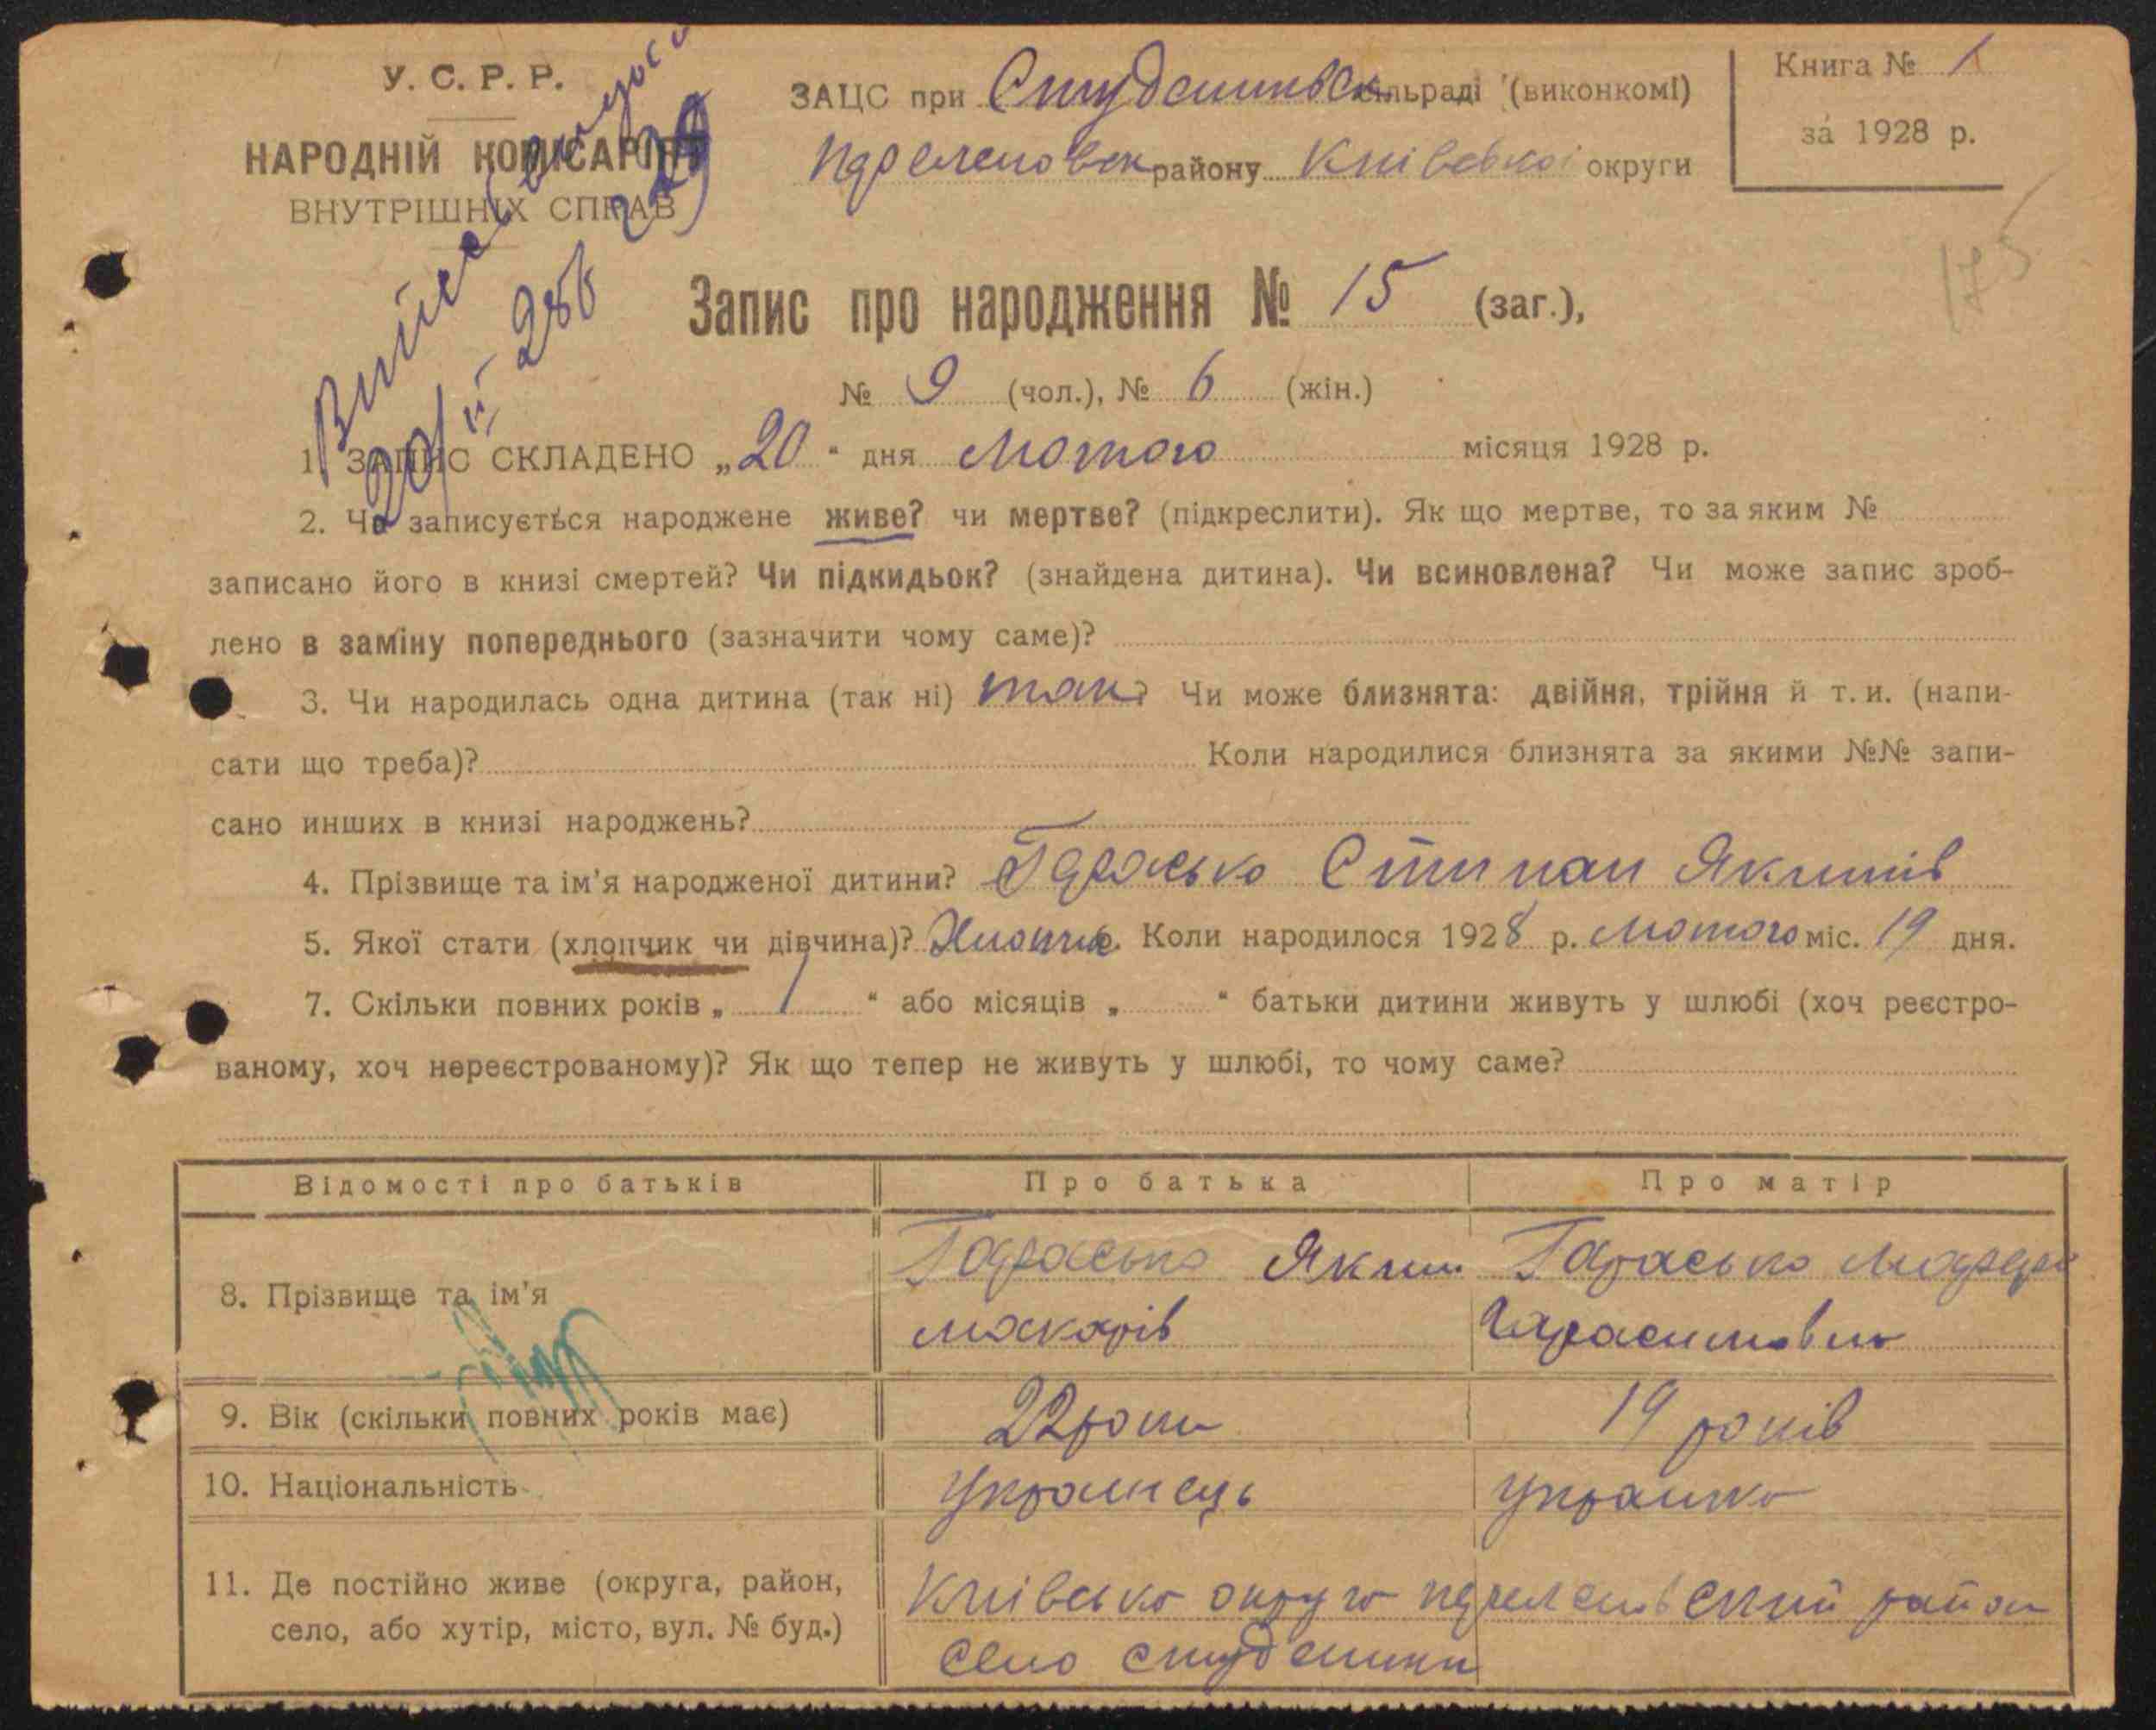 У. С. Р. Р.
НАРОДНІЙ КОМІСАРІЯТ
ВНУТРІШНІХ СПРАВ
ЗАЦС при сільраді (виконкомі)
району Київської округи
Книга № 1
за 1928 р.
175
Запис про народження № 15 (заг.),
№ 9 (чол.), № 6 (жін.)
1. ЗАПИС СКЛАДЕНО „20“ дня Лютого місяця 1928 р.
2. Чи записується народжене живе? чи мертве? (підкреслити). Як що мертве, то за яким №
записано його в книзі смертей? Чи підкидьок? (знайдена дитина). Чи всиновлена? Чи може запис зроб-
лено в заміну попереднього (зазначити чому саме)?
3. Чи народилась одна дитина (так ні) так? Чи може близнята: двійня, трійня й т. и. (напи-
сати що треба)? Коли народилися близнята за якими №№ запи-
сано инших в книзі народжень?
4. Прізвище та ім'я народженої дитини? Гарасько Стипан Якимів
5. Якої стати (хлопчик чи дівчина)? Хлопчик. Коли народилося 1928 р. Лютого міс. 19 дня.
7. Скільки повних років „ 1 “ або місяців „ “ батьки дитини живуть у шлюбі (хоч реєстро-
ваному, хоч нереєстрованому)? Як що тепер не живуть у шлюбі, то чому саме?
Відомості про батьків Про батька Про матір
8. Прізвище та ім'я Гарасько Яким Гарасько
Макарів Гарасимовна
9. Вік (скільки повних років має) 22 роки 19 років
10. Національність Українець Українка
11. Де постійно живе (округа, район, Київська округа район
село, або хутір, місто, вул. № буд.) село студеники